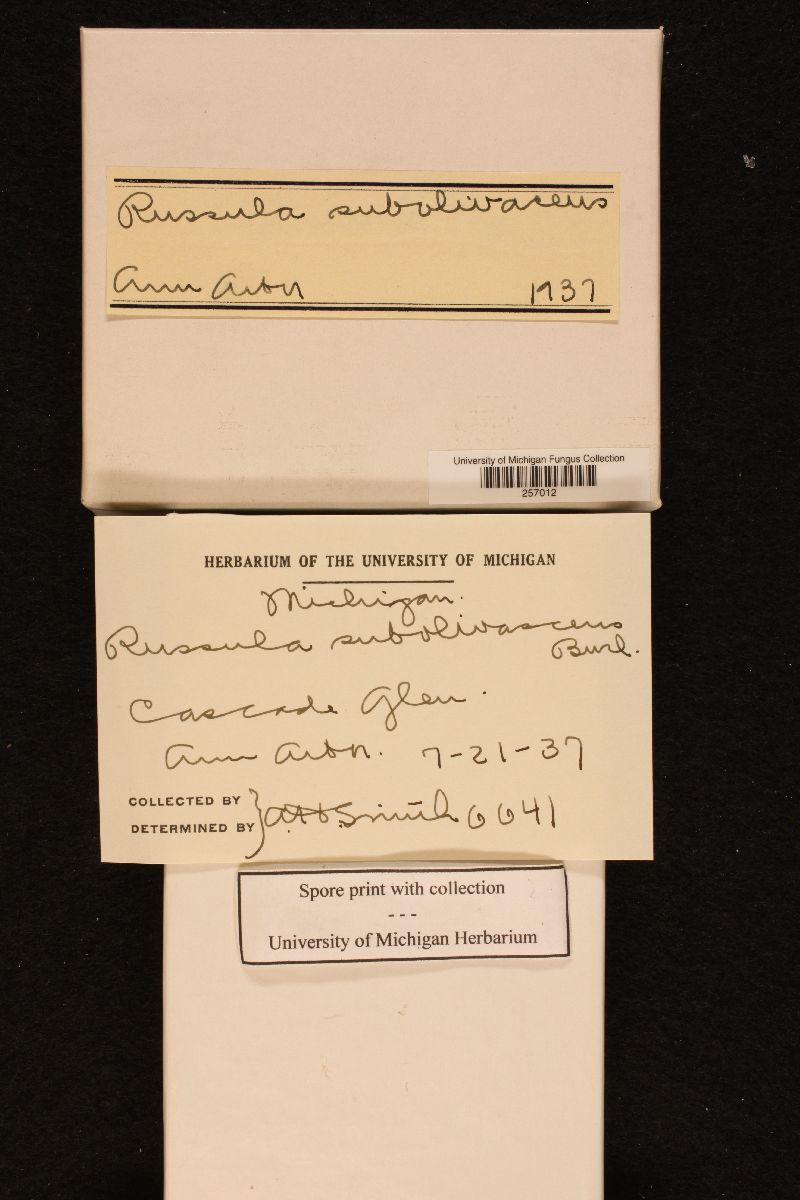 Russula subolivascens
Ann Arbor 1937
University of Michigan Fungus Collection
257012
HERBARIUM OF THE UNIVERSITY OF MICHIGAN
Michigan.
Russula subolivascens
Burl.
Cascade Glen.
Ann Arbor. 7-21-37
COLLECTED BY
DETERMINED BY } AHSmith 6641
Spore print with collection
---
University of Michigan Herbarium